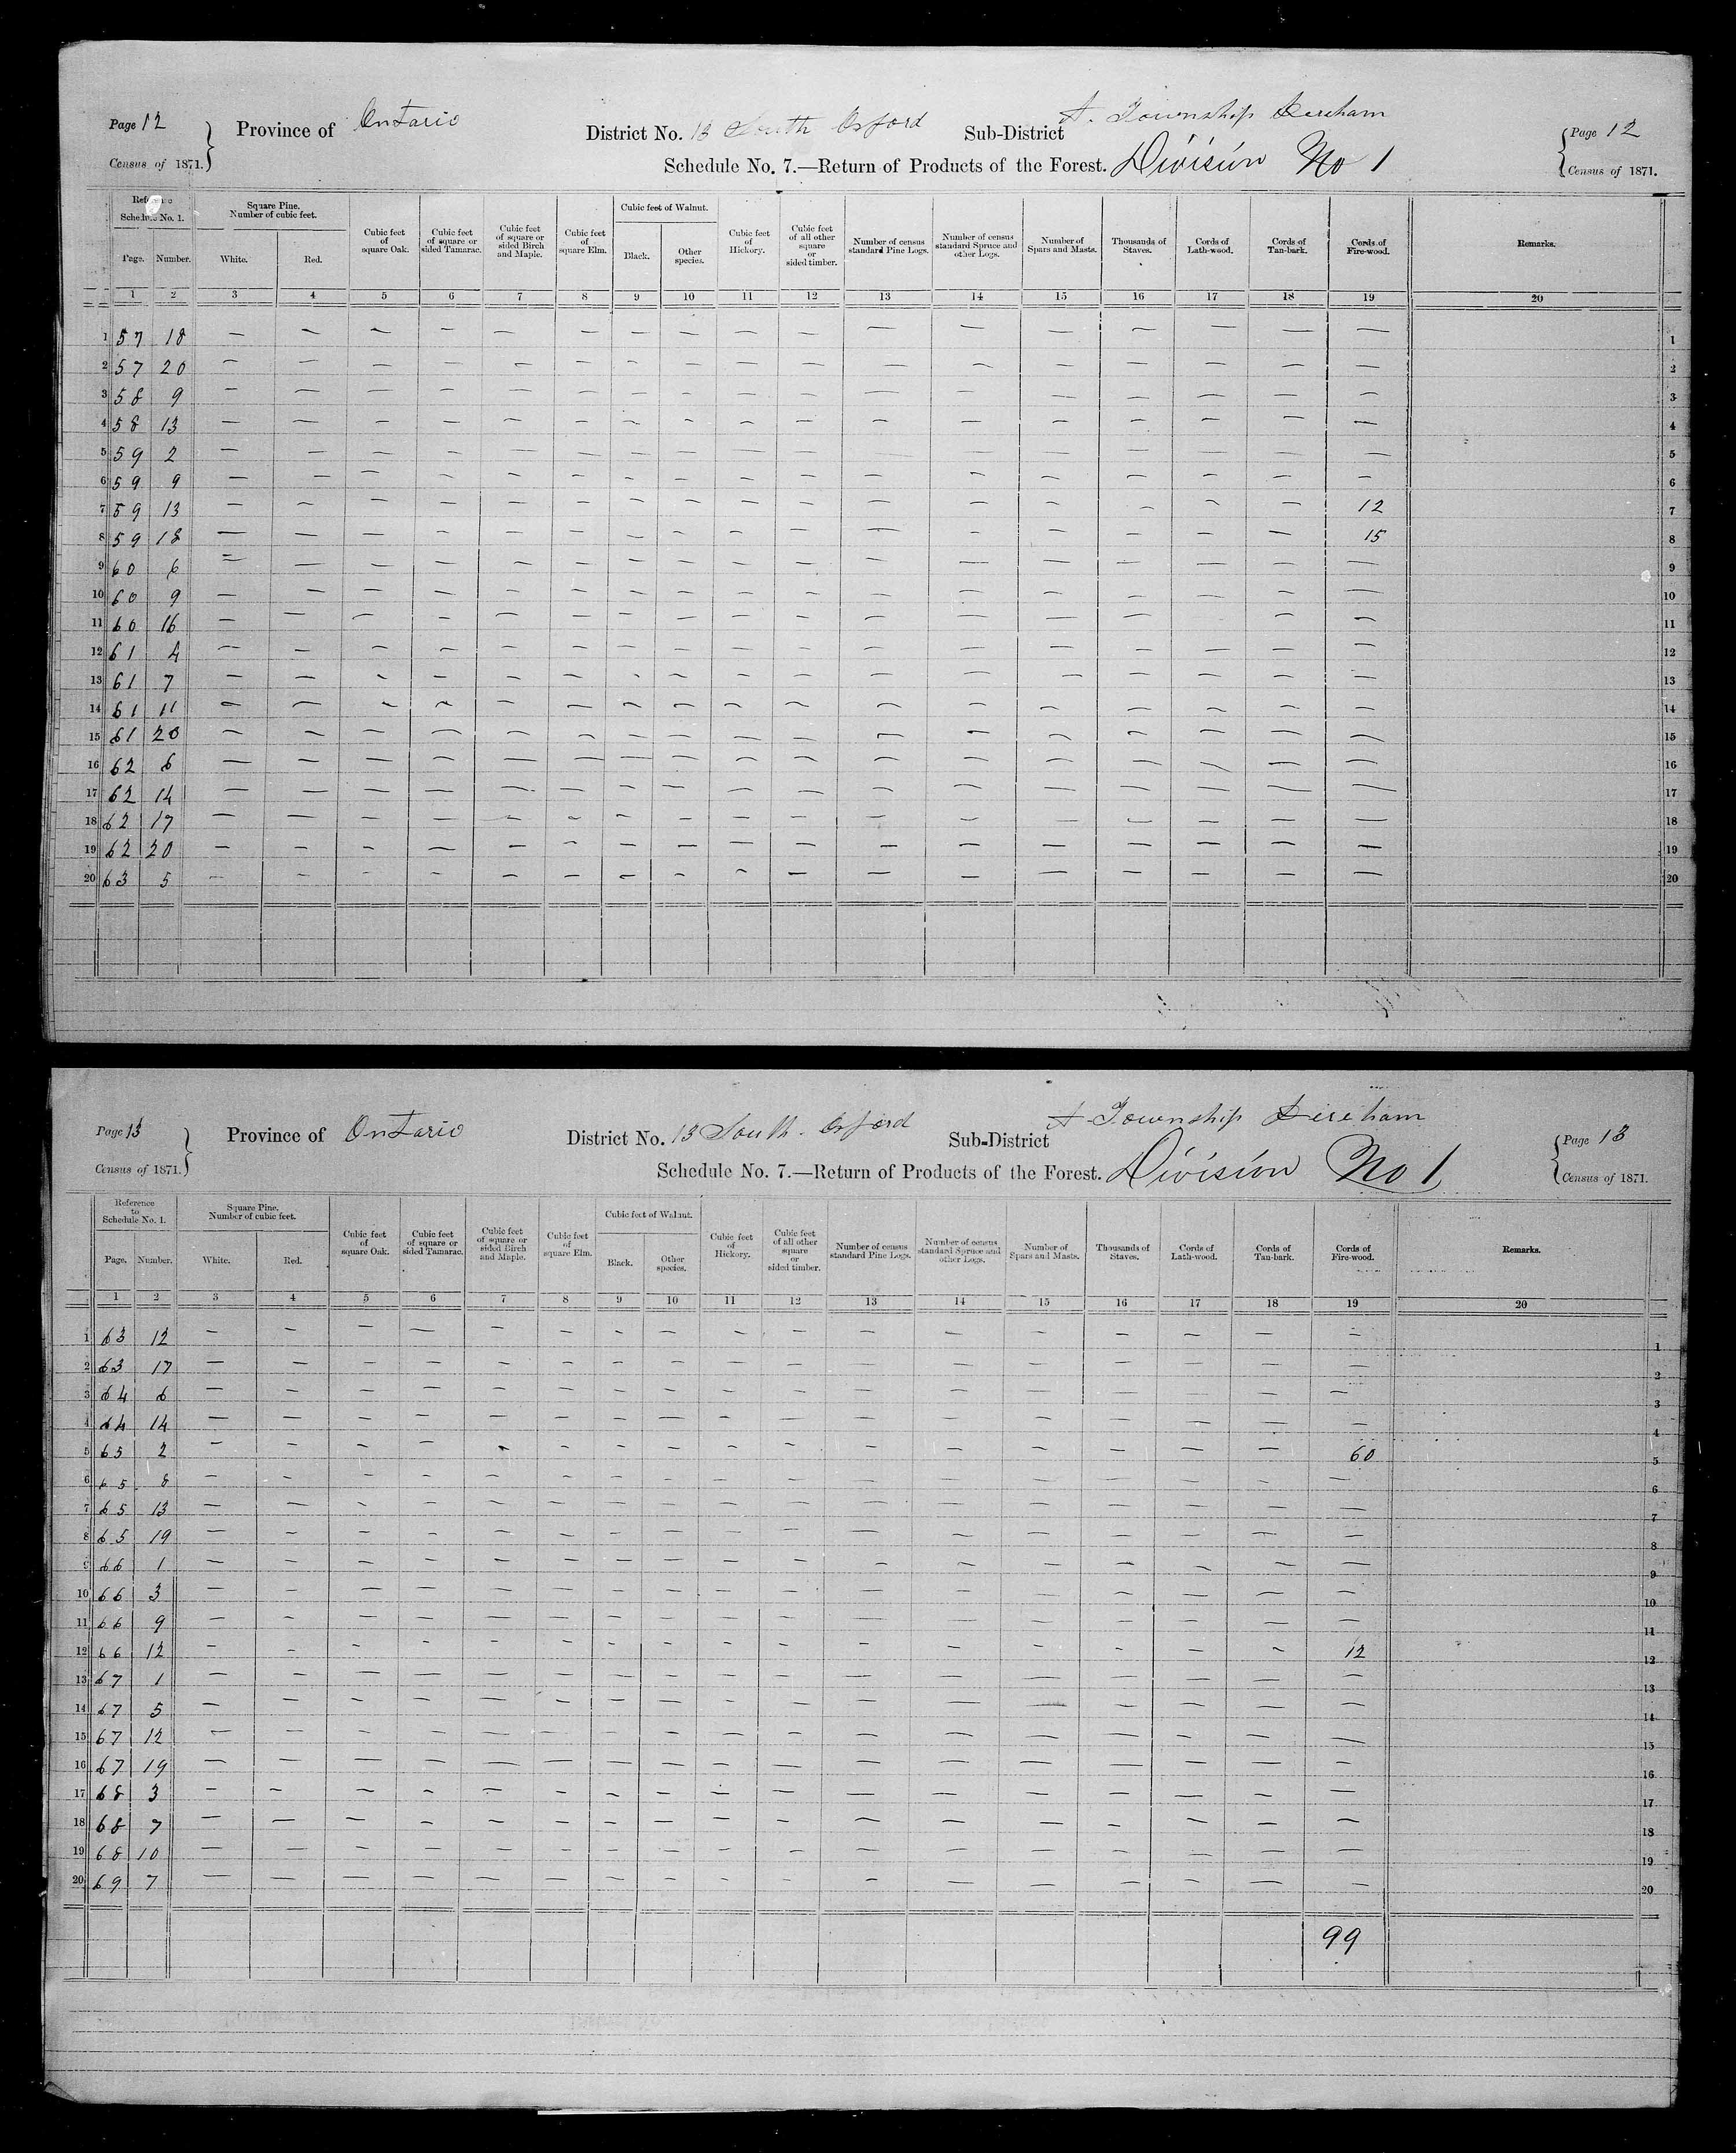 Page 12
Census of 1871.
Province of Ontario
District No. 13 South Oxford
Sub-District A. Township Dereham
Schedule No. 7.—Return of Products of the Forest. Division No 1
Page 12
Census of 1871.
Schedule No. 1.
Square Pine. Number of cubic feet.
Cubic feet of square Oak.
Cubic feet of square or sided Tamarac.
Cubic feet of square or sided Birch and Maple.
Cubic feet of square Elm.
Cubic feet of Walnut.
Cubic feet of Hickory.
Cubic feet of all other square or sided timber.
Number of census standard Pine Logs.
Number of census standard Spruce and other Logs.
Number of Spars and Masts.
Thousands of Staves.
Cords of Lath-wood.
Cords of Tan-bark.
Cords of Fire-wood.
Remarks.
Page. Number. White. Red. Black. Other species.
1 2 3 4 5 6 7 8 9 10 11 12 13 14 15 16 17 18 19 20
1 57 18 — — — — — — — — — — — — — — — — — 1
2 57 20 — — — — — — — — — — — — — — — — — 2
3 58 9 — — — — — — — — — — — — — — — — — 3
4 58 13 — — — — — — — — — — — — — — — — — 4
5 59 2 — — — — — — — — — — — — — — — — — 5
6 59 9 — — — — — — — — — — — — — — — — — 6
7 59 13 — — — — — — — — — — — — — — — — 12 7
8 59 18 — — — — — — — — — — — — — — — — 15 8
9 60 6 — — — — — — — — — — — — — — — — — 9
10 60 9 — — — — — — — — — — — — — — — — — 10
11 60 16 — — — — — — — — — — — — — — — — — 11
12 61 4 — — — — — — — — — — — — — — — — — 12
13 61 7 — — — — — — — — — — — — — — — — — 13
14 61 11 — — — — — — — — — — — — — — — — — 14
15 61 20 — — — — — — — — — — — — — — — — — 15
16 62 6 — — — — — — — — — — — — — — — — — 16
17 62 14 — — — — — — — — — — — — — — — — — 17
18 62 17 — — — — — — — — — — — — — — — — — 18
19 62 20 — — — — — — — — — — — — — — — — — 19
20 63 5 — — — — — — — — — — — — — — — — — 20
Page 13
Census of 1871.
Province of Ontario
District No. 13 South Oxford
Sub-District A Township Dereham
Schedule No. 7.—Return of Products of the Forest. Division No 1
Page 13
Census of 1871.
Reference to Schedule No. 1.
Square Pine. Number of cubic feet.
Cubic feet of square Oak.
Cubic feet of square or sided Tamarac.
Cubic feet of square or sided Birch and Maple.
Cubic feet of square Elm.
Cubic feet of Walnut.
Cubic feet of Hickory.
Cubic feet of all other square or sided timber.
Number of census standard Pine Logs.
Number of census standard Spruce and other Logs.
Number of Spars and Masts.
Thousands of Staves.
Cords of Lath-wood.
Cords of Tan-bark.
Cords of Fire-wood.
Remarks.
Page. Number. White. Red. Black. Other species.
1 2 3 4 5 6 7 8 9 10 11 12 13 14 15 16 17 18 19 20
1 63 12 — — — — — — — — — — — — — — — — — 1
2 63 17 — — — — — — — — — — — — — — — — — 2
3 64 6 — — — — — — — — — — — — — — — — — 3
4 64 14 — — — — — — — — — — — — — — — — — 4
5 65 2 — — — — — — — — — — — — — — — — 60 5
6 65 8 — — — — — — — — — — — — — — — — — 6
7 65 13 — — — — — — — — — — — — — — — — — 7
8 65 19 — — — — — — — — — — — — — — — — — 8
9 66 1 — — — — — — — — — — — — — — — — — 9
10 66 3 — — — — — — — — — — — — — — — — — 10
11 66 9 — — — — — — — — — — — — — — — — — 11
12 66 12 — — — — — — — — — — — — — — — — 12 12
13 67 1 — — — — — — — — — — — — — — — — — 13
14 67 5 — — — — — — — — — — — — — — — — — 14
15 67 12 — — — — — — — — — — — — — — — — — 15
16 67 19 — — — — — — — — — — — — — — — — — 16
17 68 3 — — — — — — — — — — — — — — — — — 17
18 68 7 — — — — — — — — — — — — — — — — — 18
19 68 10 — — — — — — — — — — — — — — — — — 19
20 69 7 — — — — — — — — — — — — — — — — — 20
99